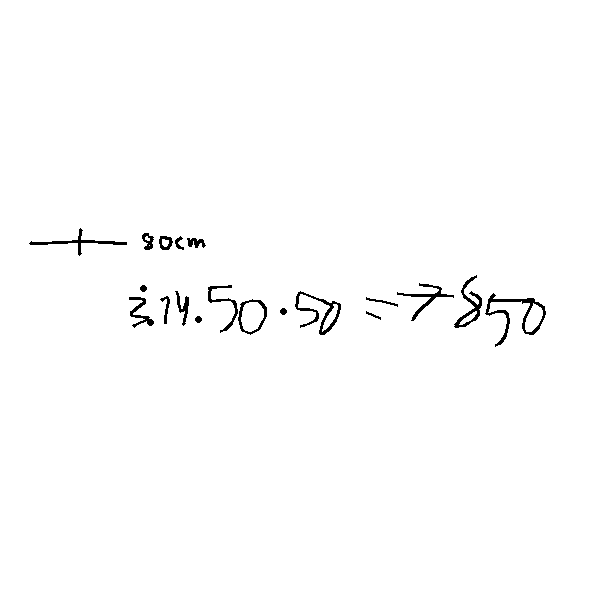 80cm
3.14.50.50 = 7850